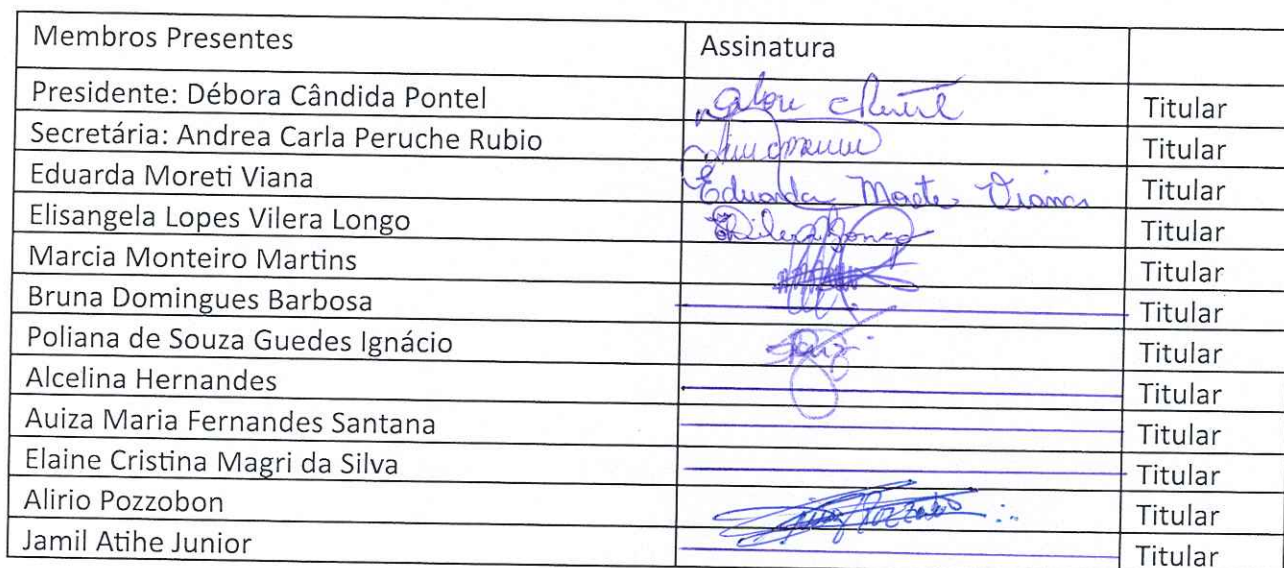 Membros Presentes Assinatura
Presidente: Débora Cândida Pontel Titular
Secretária: Andrea Carla Peruche Rubio Titular
Eduarda Moreti Viana Eduarda Moreti Viana Titular
Elisangela Lopes Vilera Longo Titular
Marcia Monteiro Martins Titular
Bruna Domingues Barbosa Titular
Poliana de Souza Guedes Ignácio Titular
Alcelina Hernandes Titular
Auiza Maria Fernandes Santana Titular
Elaine Cristina Magri da Silva Titular
Alirio Pozzobon Titular
Jamil Atihe Junior Titular